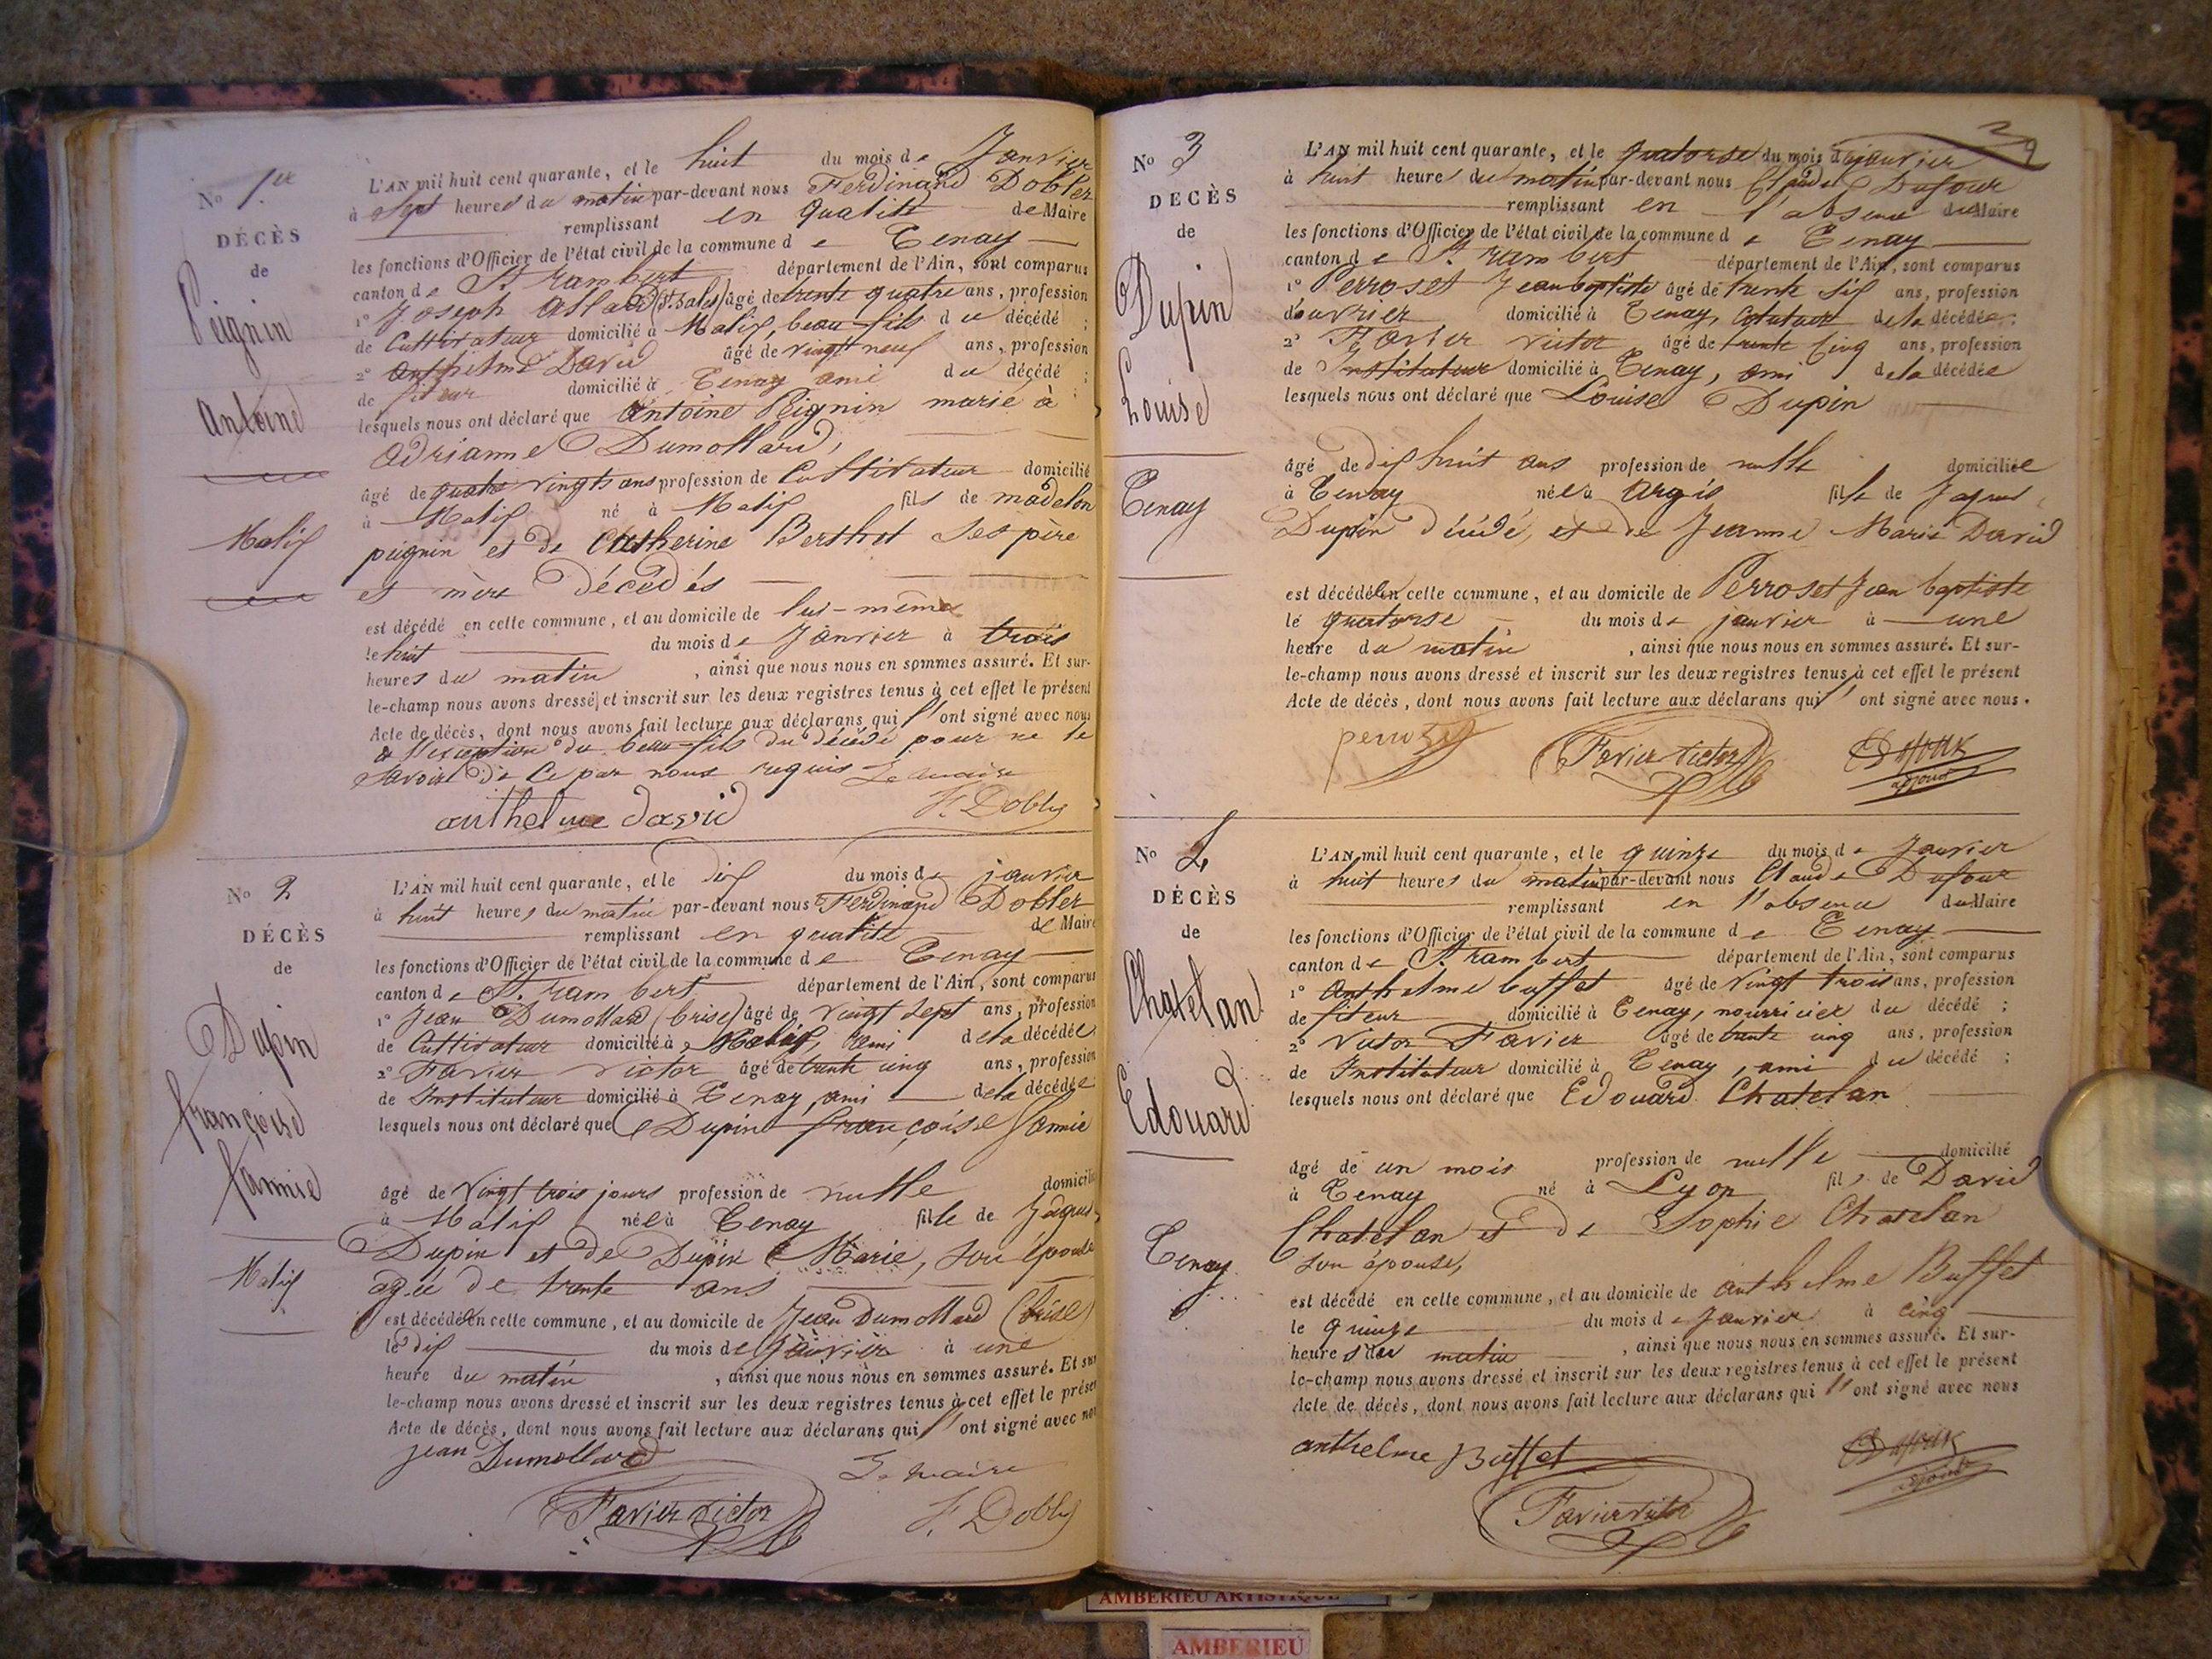 No 1er
DÉCÈS
de
Peignin
Antoine
Malix
L'AN mil huit cent quarante, et le huit du mois de Janvier
à sept heures du matin par-devant nous Ferdinand Dobler
remplissant en qualité de Maire
les fonctions d'Officier de l'état civil de la commune de Tenay
canton de St rambert département de l'Ain, sont comparus
1° Joseph Allard âgé de trente quatre ans, profession
de Cultivateur domicilié à Malix, beau-fils du décédé ;
2° anthelme David âgé de vingt neuf ans, profession
de fileur domicilié à Tenay ami du décédé ;
lesquels nous ont déclaré que Antoine Peignin marié à
Adrianne Dumollard,
âgé de quatre vingts ans profession de Cultivateur domicilié
à Malix né à Malix fils de madelon
peignin et de Catherine Berthet ses père
et mère décédés
est décédé en cette commune, et au domicile de lui-même
le huit du mois de Janvier à trois
heures du matin, ainsi que nous nous en sommes assuré. Et sur-
le-champ nous avons dressé et inscrit sur les deux registres tenus à cet effet le présent
Acte de décès, dont nous avons fait lecture aux déclarans qui l'ont signé avec nous
à l'exception du beau-fils du décédé pour ne le
savoir de ce par nous requis Le maire
anthelme david F. Dobler
No 2
DÉCÈS
de
Dupin
françoise
fannie
Malix
L'AN mil huit cent quarante, et le dix du mois de janvier
à huit heures du matin par-devant nous Ferdinand Dobler
remplissant en qualité de Maire
les fonctions d'Officier de l'état civil de la commune de Tenay
canton de St. rambert département de l'Ain, sont comparus
1° Jean Dumollard (brise) âgé de vingt sept ans, profession
de Cultivateur domicilié à Malix, ami de la décédée
2° Favier victor âgé de trente cinq ans, profession
de Instituteur domicilié à Tenay, ami de la décédée
lesquels nous ont déclaré que Dupin françoise fannie
âgé de vingt trois jours profession de nulle domicilié
à Malix née à Tenay fille de Jaques
Dupin et de Dupin Marie, son épouse
agée de trente ans
est décédée en cette commune, et au domicile de Jean Dumollard (brise)
le dix du mois de Janvier à une
heure du matin, ainsi que nous nous en sommes assuré. Et sur
le-champ nous avons dressé et inscrit sur les deux registres tenus à cet effet le présent
Acte de décès, dont nous avons fait lecture aux déclarans qui l'ont signé avec nous
jean Dumollard Le maire
Favier victor F. Dobler
No 3
DÉCÈS
de
Dupin
Louise
Tenay
L'AN mil huit cent quarante, et le quatorze du mois de janvier
à huit heures du matin par-devant nous Claude Dufour
remplissant en l'absence du Maire
les fonctions d'Officier de l'état civil de la commune de Tenay
canton de St. rambert département de l'Ain, sont comparus
1° Perroset Jean baptiste âgé de trente six ans, profession
d'ouvrier domicilié à Tenay, de la décédée ;
2° Favier victor âgé de trente cinq ans, profession
de Instituteur domicilié à Tenay, ami de la décédée
lesquels nous ont déclaré que Louise Dupin
âgé de dix huit ans profession de nulle domiciliée
à Tenay née à Argis fille de Jaques
Dupin décédé, et de Jeanne Marie David
est décédée en cette commune, et au domicile de Perroset Jean baptiste
le quatorze du mois de janvier à une
heure du matin, ainsi que nous nous en sommes assuré. Et sur-
le-champ nous avons dressé et inscrit sur les deux registres tenus à cet effet le présent
Acte de décès, dont nous avons fait lecture aux déclarans qui l'ont signé avec nous.
perroset Favier victor Dufour
adjoint
No 4
DÉCÈS
de
Chatelan
Edouard
Tenay
L'AN mil huit cent quarante, et le quinze du mois de Janvier
à huit heures du matin par-devant nous Claude Dufour
remplissant en l'absence du Maire
les fonctions d'Officier de l'état civil de la commune de Tenay
canton de St. rambert département de l'Ain, sont comparus
1° Anthelme buffet âgé de vingt trois ans, profession
de fileur domicilié à Tenay, nourricier du décédé ;
2° Victor Favier âgé de trente cinq ans, profession
de Instituteur domicilié à Tenay, ami du décédé ;
lesquels nous ont déclaré que Edouard Chatelan
âgé de un mois profession de nulle domicilié
à Tenay né à Lyon fils de David
Chatelan et de Sophie Chatelan
son épouse,
est décédé en cette commune, et au domicile de anthelme Buffet
le quinze du mois de Janvier à cinq
heures du matin, ainsi que nous nous en sommes assuré. Et sur-
le-champ nous avons dressé et inscrit sur les deux registres tenus à cet effet le présent
Acte de décès, dont nous avons fait lecture aux déclarans qui l'ont signé avec nous
anthelme Buffet Dufour
adjoint
Favier victor
AMBERIEU ARTISTIQUE
AMBERIEU